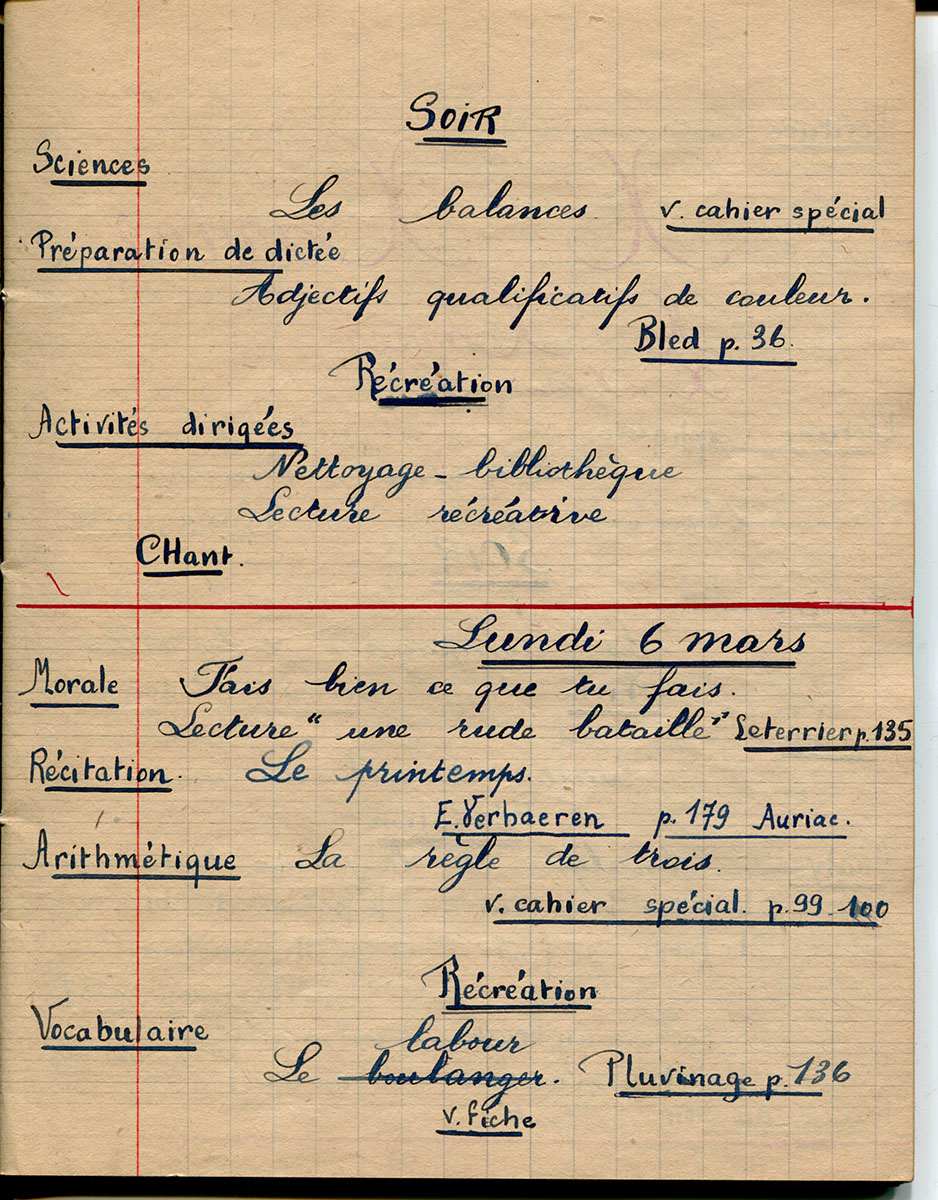 SOIR
Sciences
Les balances v. cahier spécial
Préparation de dictée
Adjectifs qualificatifs de couleur.
Bled p. 36.
Récréation
Activités dirigées
Nettoyage - bibliothèque
Lecture récréative
CHant.
Lundi 6 mars
Morale Fais bien ce que tu fais.
Lecture "une rude bataille" Leterrier p. 135
Récitation. Le printemps.
E. Verhaeren p. 179 Auriac.
Arithmétique La règle de trois.
v. cahier spécial. p. 99-100
Récréation
Vocabulaire labour
Le boulanger. Pluvinage p. 136
v. fiche